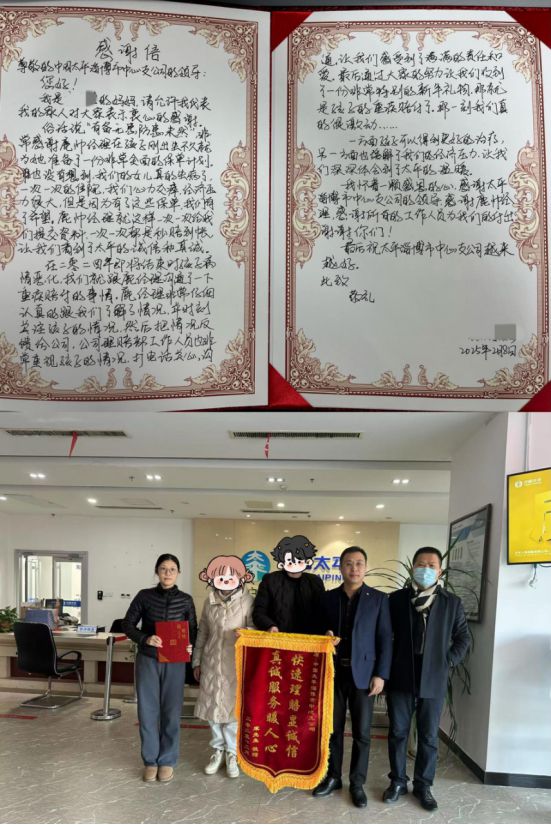 感谢信
尊敬的中国太平淄博市中心支公司的领导:
您好!
我是 的妈妈,请允许我代表
我的家人对大家表示衷心的感谢。
俗话说"有备无患,防患未然"非
常感谢鹿帅经理在孩子刚出生不久就
为她准备了一份非常全面的保单计划。
谁也没有想到,我们的女儿真的生病了,
一次一次的住院,我们心力交瘁,经济压
力很大,但是因为有了这些保单,我们有
了希望,鹿帅经理就这样一次一次给我
们提交资料,一次次都是秒赔到账,
让我们看到了太平的诚信和真诚。
在二零二四年即将结束时孩子病
情恶化,我们就跟鹿经理沟通了一下
重疾赔付的事情。鹿经理非常仔细
认真的跟我们了解了情况,并时刻
关注孩子的情况,然后把情况反
馈给公司,公司理赔部工作人员也非
常重视孩子的情况,打电话关心,沟
通,让我们感受到了满满的责任和
爱。最后通过大家的努力让我们收到
了一份非常特别的新年礼物,那就
是孩子的重疾赔付了,那一刻我们真
的很激动……
一方面孩子可以得到更好的治疗,
另一方面也缓解了我们的经济压力,让我
们深深体会到了太平的温暖。
我怀着一颗感恩的心,感谢太平
淄博市中心支公司的领导,感谢鹿帅经
理,感谢所有的工作人员为我们的付出
谢谢你们!
最后祝太平淄博市中心支公司越来
越好。
此致
敬礼
2025年2月8日
太平
PING
快速理赔显诚信
真诚服务暖人心